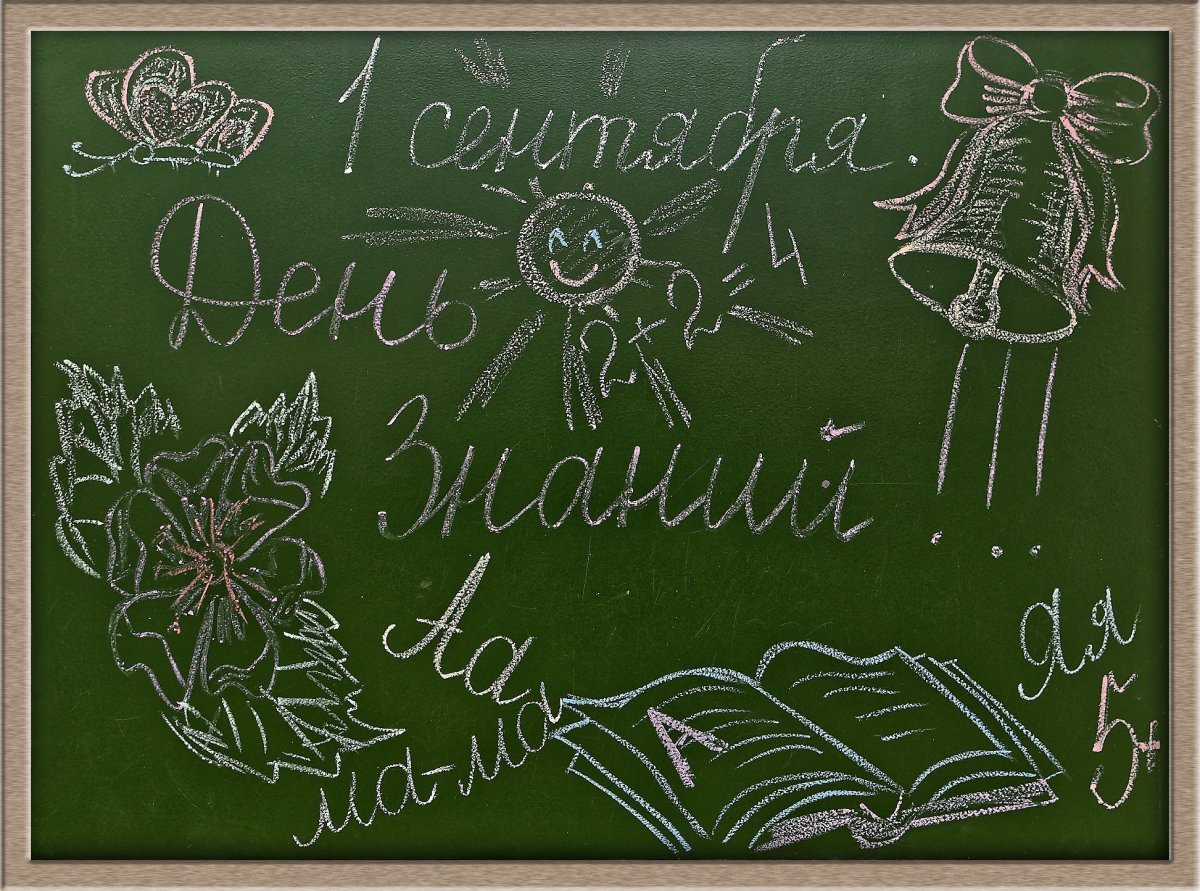 1 сентября.
День
2+2=4
Знаний!!!
Аа
ма-ма
А
Яя
5+